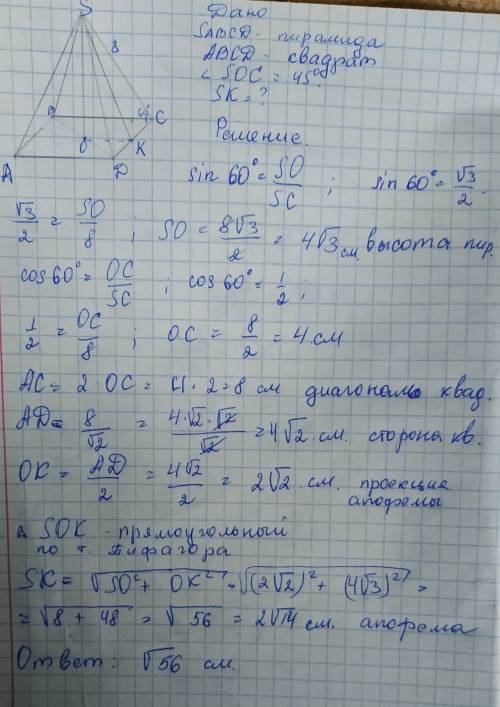 Дано
SABCD - пирамида
ABCD - квадрат
∠ SOC = 45°
SK = ?
Решение.
S
8
B
C
O
K
A
D
sin 60° = SO/SC ; sin 60° = √3/2.
√3/2 = SO/8 ; SO = 8√3/2 = 4√3 см. высота пир.
cos 60° = OC/SC ; cos 60° = 1/2 ;
1/2 = OC/8 ; OC = 8/2 = 4 см
AC = 2 · OC = 4 · 2 = 8 см диагональ квад.
AD = 8/√2 = 4·√2·√2/√2 = 4√2 см. сторона кв.
OK = AD/2 = 4√2/2 = 2√2 см. проекция апофемы
Δ SOK - прямоугольный
по т. Пифагора
SK = √SO² + OK² = √(2√2)² + (4√3)² =
= √8 + 48 = √56 = 2√14 см. апофема
Ответ: √56 см.